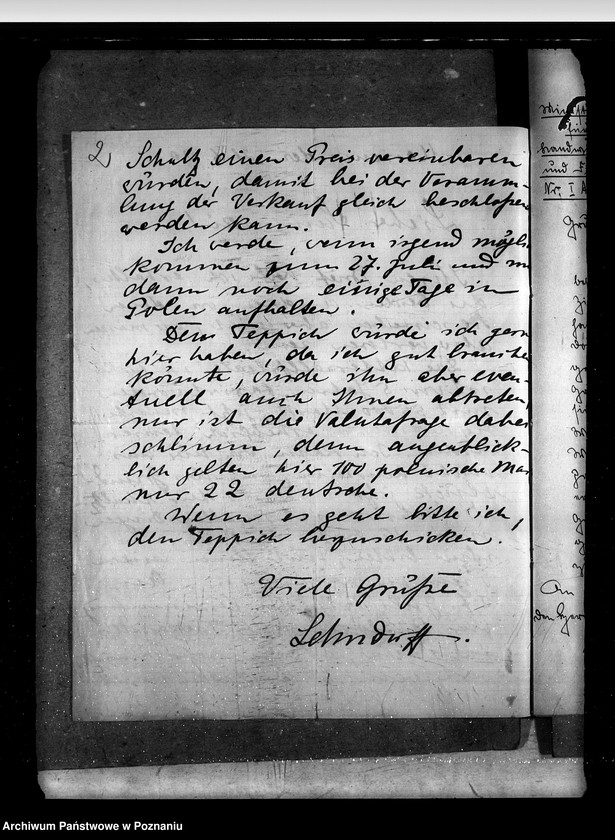 2)
Schultz einen Preis vereinbaren
würden, damit bei der Versamm-
lung der Verkauf gleich beschloßen
werden kann.
Ich werde, wenn irgend mögli
kommen zum 27. Juli und m
dann noch einige Tage in
Polen aufhalten.
Den Teppich würde ich gern
hier haben, da ich gut brauchen
könnte, würde ihn aber even-
tuell auch Ihnen abtreten,
nur ist die Valutafrage dabei
schlimm, denn augenblick-
lich gelten hier 100 polnische Mar
nur 22 deutsche.
Wenn es geht bitte ich,
den Teppich herzuschicken.
Viele Grüße
Lehndorff.
und F
Nr. I A
An
Archiwum Państwowe w Poznaniu